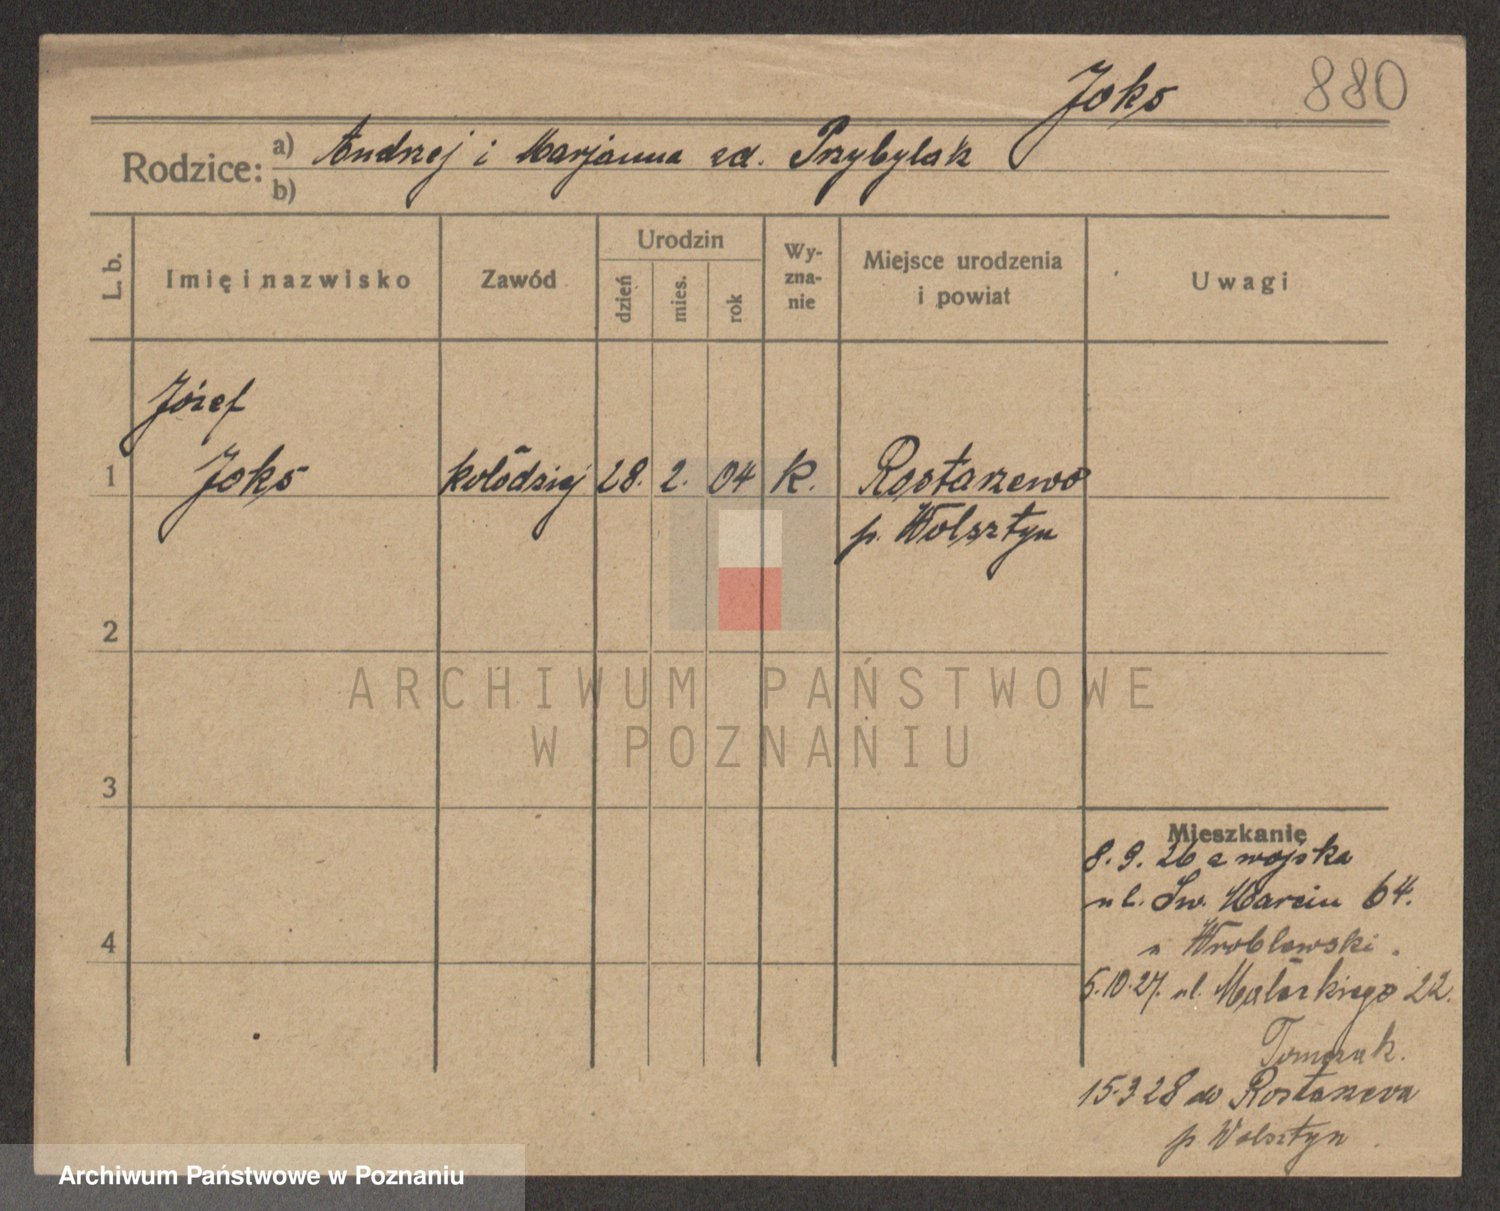 Joks 880
Rodzice: a) Andrzej i Marjanna zd. Przybylak
b)
L. b. Imię i nazwisko Zawód Urodzin dzień mies. rok Wy-zna-nie Miejsce urodzenia i powiat Uwagi
Józef
1 Joks kołodziej 28. 2. 04 k. Rostarzewo
p. Wolsztyn
2
3
4
Mieszkanie
8. 9. 26 z wojska
ul. Św. Marcin 64.
u Wroblewski.
5.10.27. ul. Małeckiego 22.
Tomczak.
15.3 28 do Rostarzewa
p Wolsztyn
ARCHIWUM PAŃSTWOWE
W POZNANIU
Archiwum Państwowe w Poznaniu